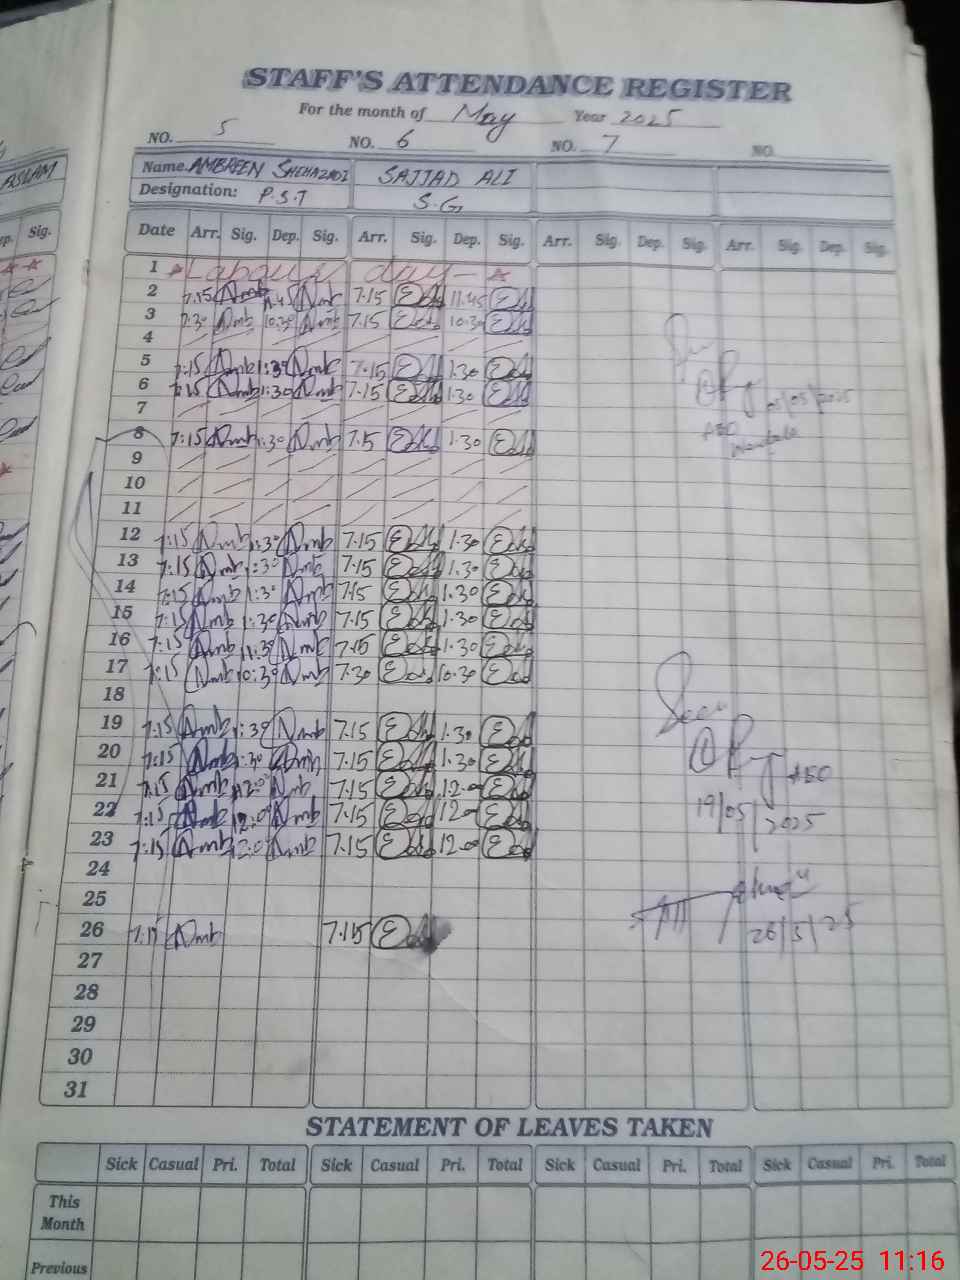 STAFF'S ATTENDANCE REGISTER
For the month of May Year 2025
NO. 5 NO. 6 NO. 7 NO.
ASLAM Name. AMBREEN SHEHAZADI SAJJAD ALI
Designation: P.S.T S.G
Sig. Date Arr. Sig. Dep. Sig. Arr. Sig. Dep. Sig. Arr. Sig. Dep. Sig. Arr. Sig. Dep. Sig.
1 Labour day
2 7:15 Amb 11.45 Amb 7.15 11.45
3 7:30 Amb 10:30 Amb 7.15 10.30
4
5 7:15 Amb 1:30 Amb 7.15 1.30
6 7:15 Amb 1:30 Amb 7.15 1.30
05/05/2025
7
8 7:15 Amb 1:30 Amb 7.15 1.30
9
10
11
12 7:15 Amb 1:30 Amb 7.15 1.30
13 7:15 Amb 1:30 Amb 7.15 1.30
14 7:15 Amb 1:30 Amb 7.15 1.30
15 7:15 Amb 1:30 Amb 7.15 1.30
16 7:15 Amb 1:30 Amb 7.15 1.30
17 7:15 Amb 10:30 Amb 7.30 10.30
18
19 7:15 Amb 1:30 Amb 7.15 1.30
20 7:15 Amb 1:30 Amb 7.15 1.30
21 7:15 Amb 12:0 Amb 7.15 12.00
AEO
22 7:15 Amb 12:0 Amb 7.15 12.00
19/05/2025
23 7:15 Amb 12:0 Amb 7.15 12.00
24
25
26 7:15 Amb 7.15
26/5/25
27
28
29
30
31
STATEMENT OF LEAVES TAKEN
Sick Casual Pri. Total Sick Casual Pri. Total Sick Casual Pri. Total Sick Casual Pri. Total
This
Month
Previous
26-05-25 11:16